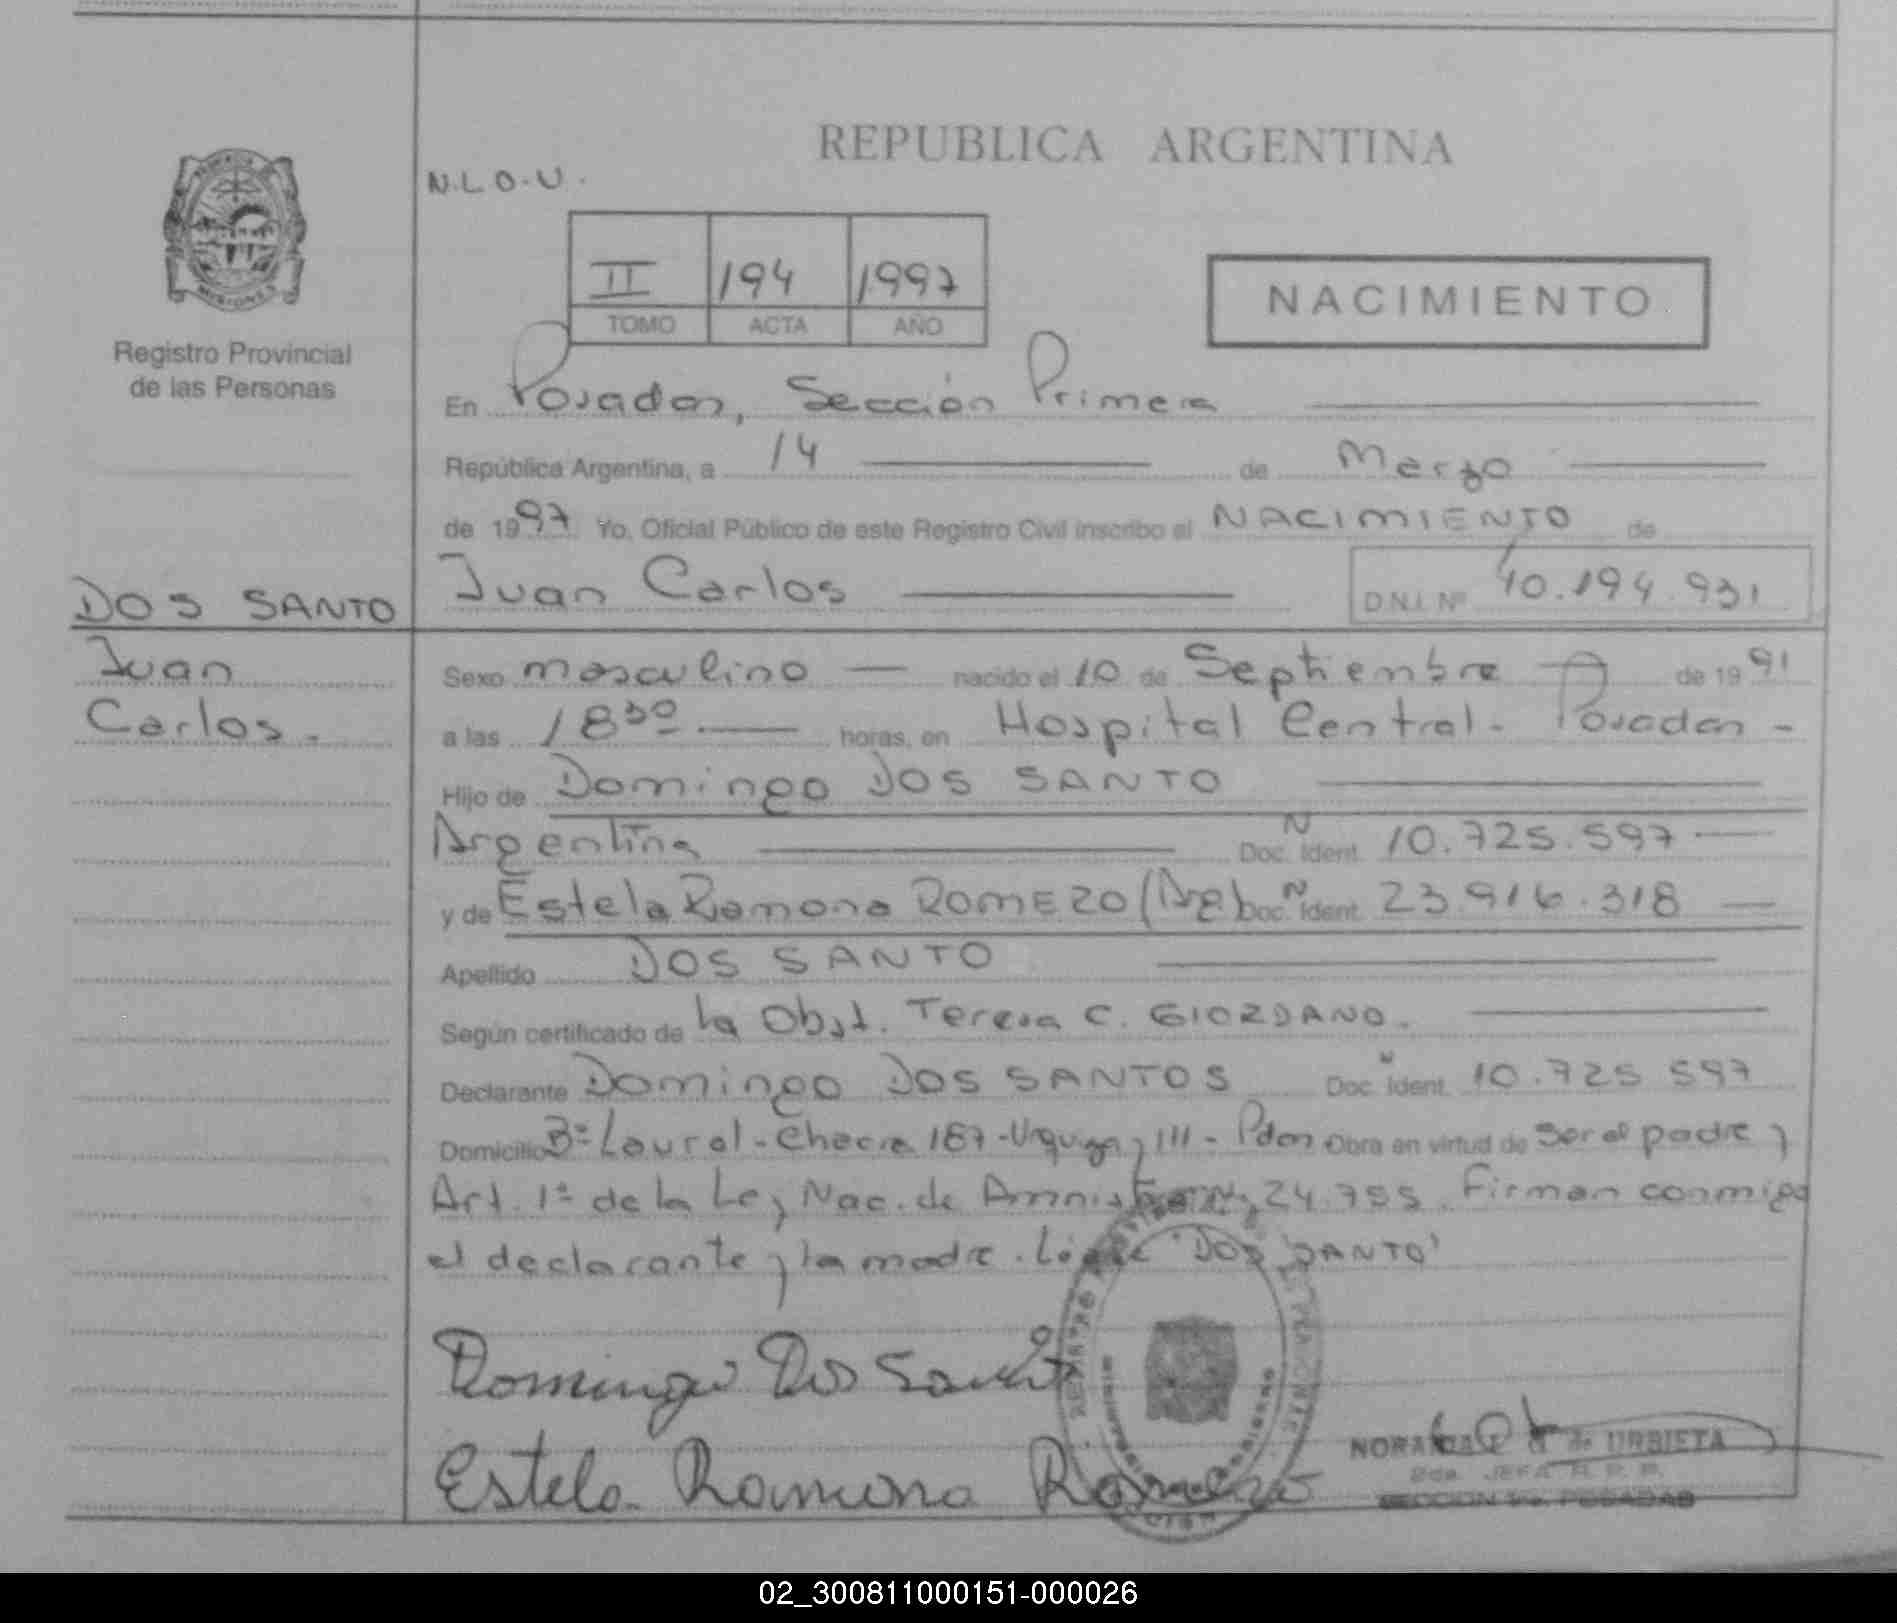 REPUBLICA ARGENTINA
N.L.O.U.
MISIONES
II 194 1997
TOMO ACTA AÑO
NACIMIENTO
Registro Provincial
de las Personas
En Posadas, Sección Primera
República Argentina, a 14 de Marzo
de 1997 Yo, Oficial Público de este Registro Civil inscribo el NACIMIENTO de
DOS SANTO
Juan Carlos D.N.I. Nº 40.194.931
Juan
Carlos.
Sexo masculino nacido el 10 de Septiembre de 1991
a las 18³⁰ horas, en Hospital Central - Posadas -
Hijo de Domingo DOS SANTO
Argentina Doc. Ident. N 10.725.597
y de Estela Ramona ROMERO (Arg) Doc. Ident. N 23.916.318
Apellido DOS SANTO
Según certificado de la Obst. Teresa C. GIORDANO.
Declarante Domingo DOS SANTOS Doc. Ident. N 10.725 597
Domicilio Bº Laurel - Chacra 187 - Urquiza y 111 - Pdas Obra en virtud de ser el padre y
Art. 1º de la Ley Nac. de Amnistía Nº 24.755. Firman conmigo
el declarante y la madre. Léase 'DOS SANTO'
Domingo Dos Santo
Estela Ramona Romero
NORA de URBIETA
2da. JEFA R. P. P.
SECCION 1ra. POSADAS
02_300811000151-000026